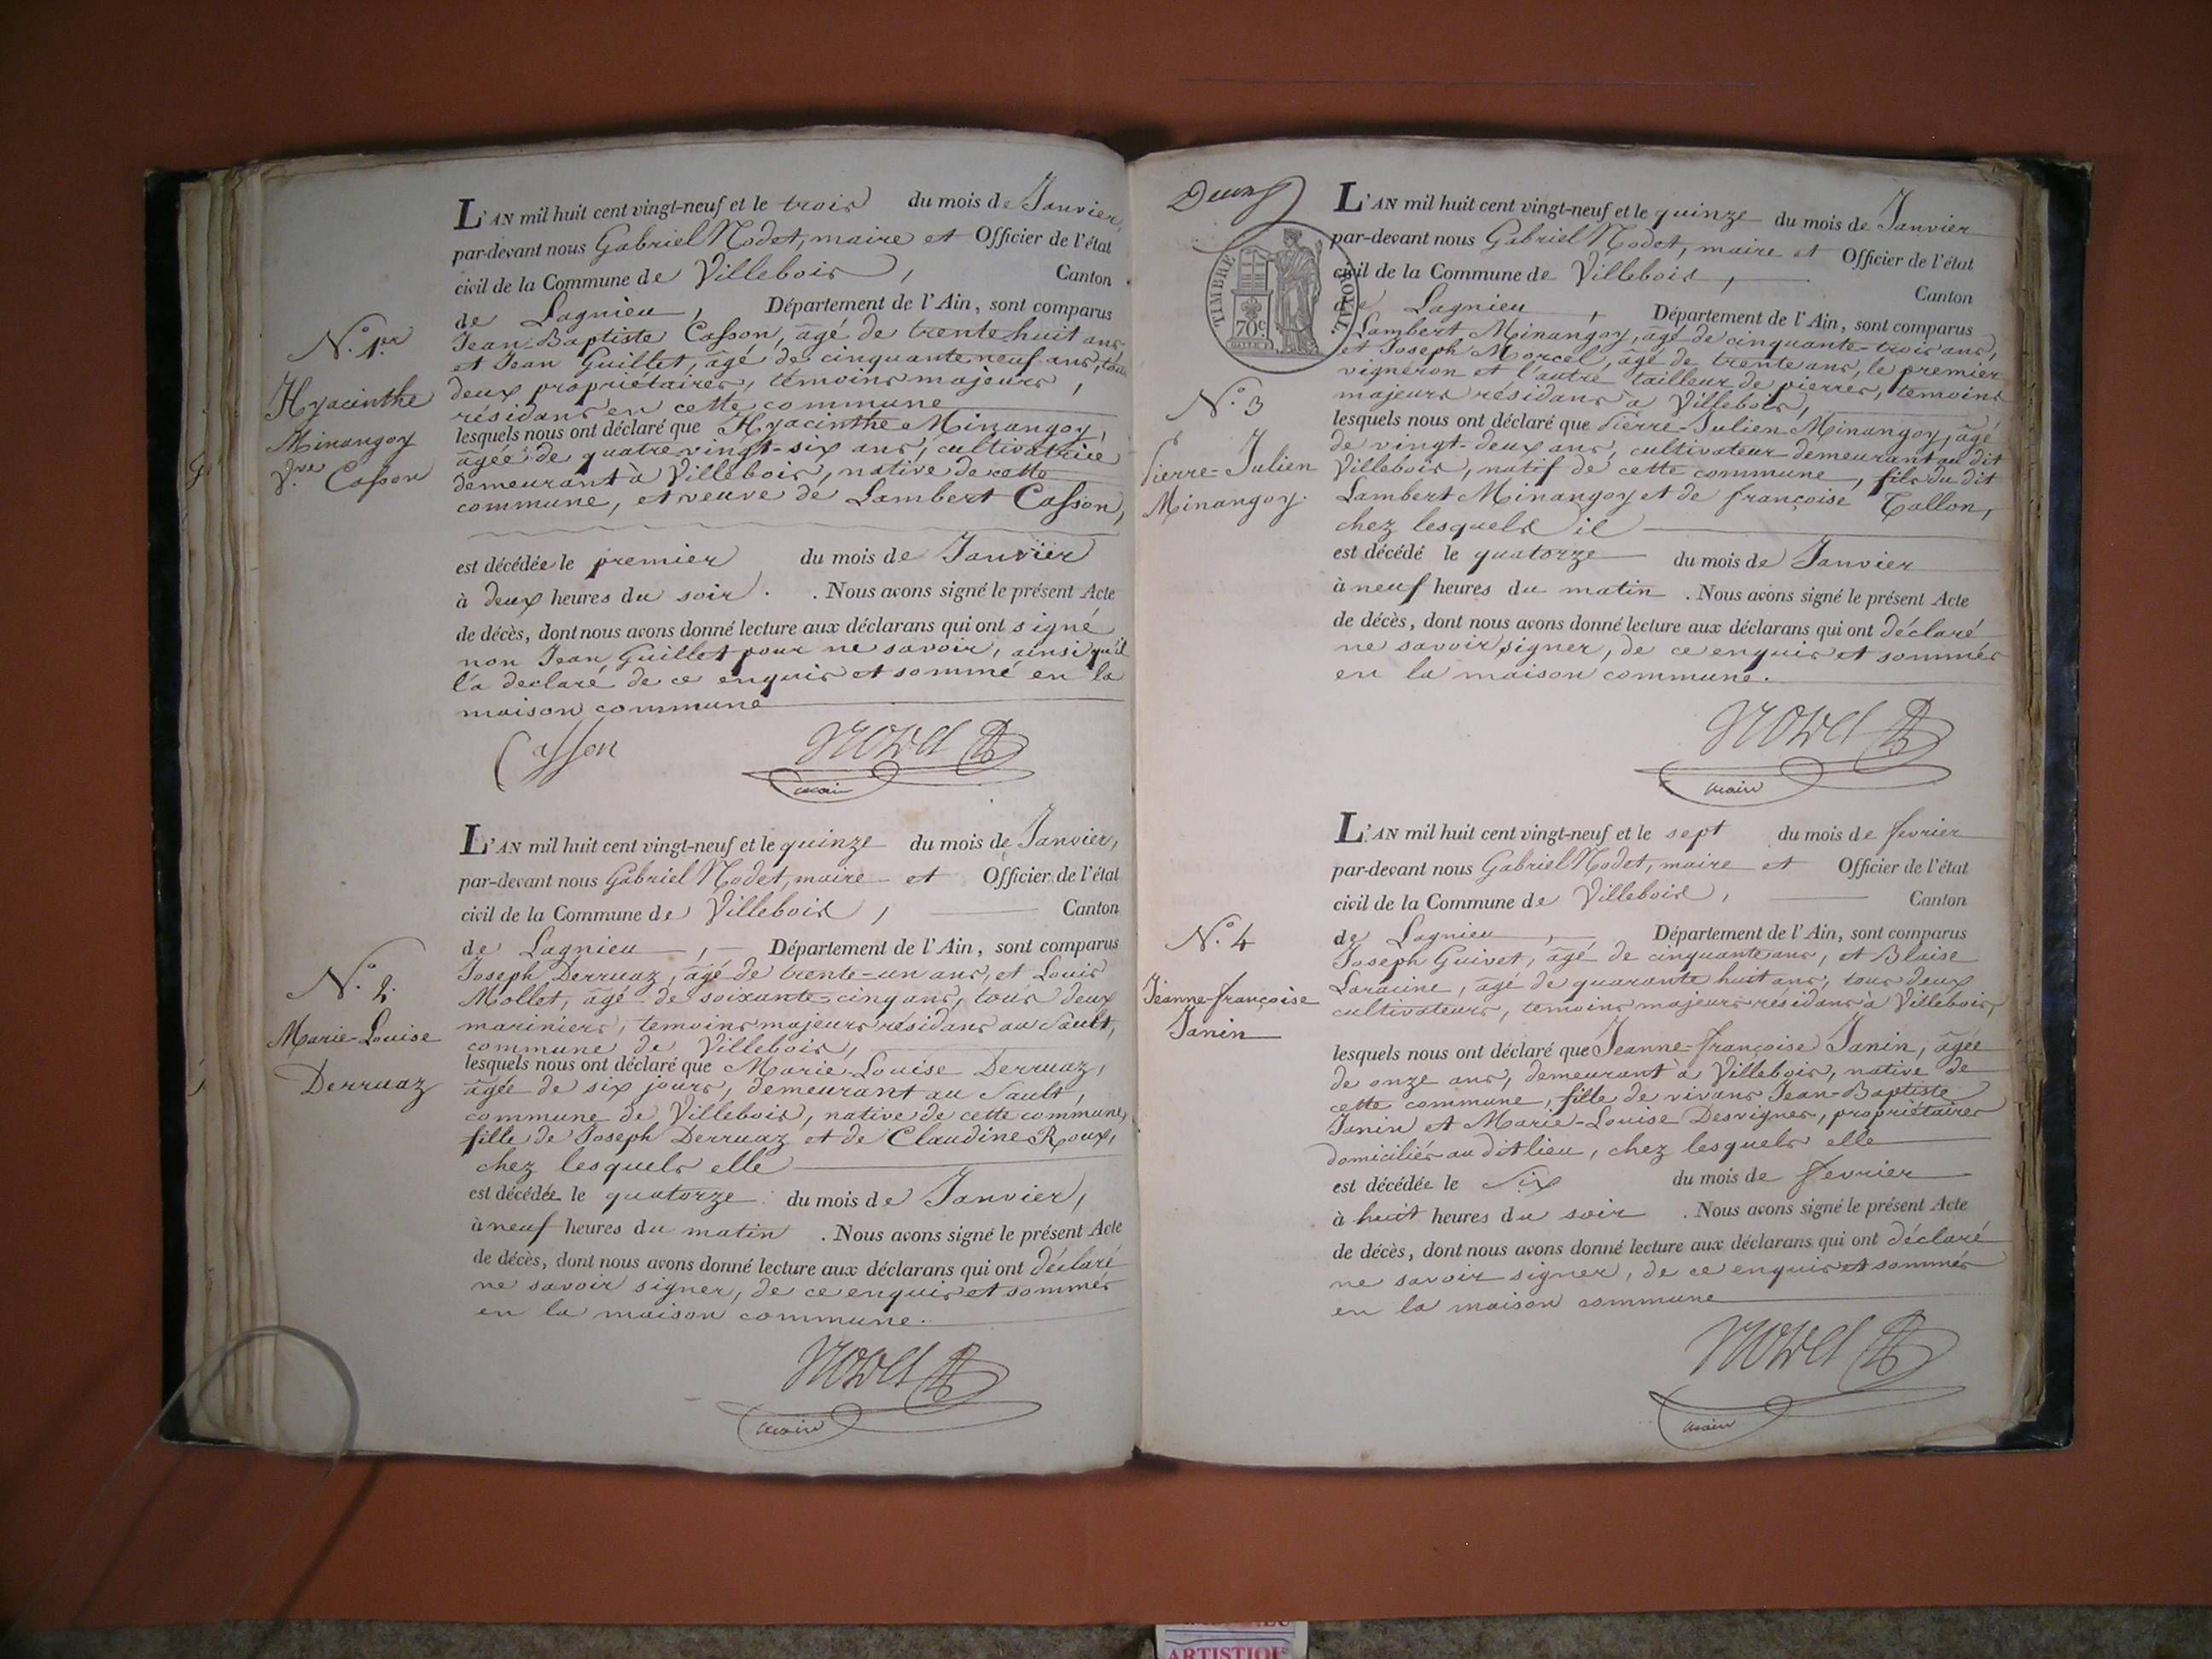 N.° 1.er
Hyacinthe
Minangoy
V.ve Casson
L'AN mil huit cent vingt-neuf et le trois du mois de Janvier,
par-devant nous Gabriel Nodet, maire et Officier de l'état
civil de la Commune de Villebois, Canton
de Lagnieu, Département de l'Ain, sont comparus
Jean-Baptiste Casson, âgé de trente huit ans
et Jean Guillet, âgé de cinquante neuf ans, tous
deux propriétaires, témoins majeurs,
résidans en cette commune
lesquels nous ont déclaré que Hyacinthe Minangoy,
âgée de quatre vingt-six ans, cultivatrice
demeurant à Villebois, native de cette
commune, et veuve de Lambert Casson,
est décédée le premier du mois de Janvier
à deux heures du soir. . Nous avons signé le présent Acte
de décès, dont nous avons donné lecture aux déclarans qui ont signé
non Jean Guillet pour ne savoir, ainsi qu'il
l'a declaré de ce enquis et sommé en la
maison commune
Casson Nodet
maire
N.° 2.
Marie-Louise
Derruaz
L'AN mil huit cent vingt-neuf et le quinze du mois de Janvier,
par-devant nous Gabriel Nodet, maire et Officier de l'état
civil de la Commune de Villebois, Canton
de Lagnieu, Département de l'Ain, sont comparus
Joseph Derruaz, âgé de trente-un ans, et Louis
Mollet, âgé de soixante-cinq ans, tous deux
mariniers, temoins majeurs résidans au Sault,
commune de Villebois,
lesquels nous ont déclaré que Marie-Louise Derruaz,
âgée de six jours, demeurant au Sault,
commune de Villebois, native de cette commune,
fille de Joseph Derruaz et de Claudine Roux,
chez lesquels elle
est décédée le quatorze du mois de Janvier,
à neuf heures du matin . Nous avons signé le présent Acte
de décès, dont nous avons donné lecture aux déclarans qui ont déclaré
ne savoir signer, de ce enquis et sommés
en la maison commune.
Nodet
maire
TIMBRE ROYAL
70c
N.° 3
Pierre-Julien
Minangoy.
L'AN mil huit cent vingt-neuf et le quinze du mois de Janvier
par-devant nous Gabriel Nodet, maire et Officier de l'état
civil de la Commune de Villebois, Canton
de Lagnieu, Département de l'Ain, sont comparus
Lambert Minangoy, âgé de cinquante-trois ans,
et Joseph Morcel, âgé de trente ans, le premier
vigneron et l'autre tailleur de pierres, temoins
majeurs résidans à Villebois,
lesquels nous ont déclaré que Pierre-Julien Minangoy, âgé
de vingt-deux ans, cultivateur demeurant au dit
Villebois, natif de cette commune, fils du dit
Lambert Minangoy et de françoise Tallon,
chez lesquels il
est décédé le quatorze du mois de Janvier
à neuf heures du matin . Nous avons signé le présent Acte
de décès, dont nous avons donné lecture aux déclarans qui ont déclaré
ne savoir signer, de ce enquis et sommés
en la maison commune.
Nodet
maire
N.° 4
Jeanne-françoise
Janin
L'AN mil huit cent vingt-neuf et le sept du mois de fevrier
par-devant nous Gabriel Nodet, maire et Officier de l'état
civil de la Commune de Villebois, Canton
de Lagnieu, Département de l'Ain, sont comparus
Joseph Guivet, âgé de cinquante ans, et Blaise
Laracine, âgé de quarante huit ans, tous deux
cultivateurs, temoins majeurs résidans à Villebois,
lesquels nous ont déclaré que Jeanne-françoise Janin, âgée
de onze ans, demeurant à Villebois, native de
cette commune, fille de vivans Jean-Baptiste
Janin et Marie-Louise Desvignes, propriétaires
domiciliés au dit lieu, chez lesquels elle
est décédée le Six du mois de fevrier
à huit heures du soir . Nous avons signé le présent Acte
de décès, dont nous avons donné lecture aux déclarans qui ont déclaré
ne savoir signer, de ce enquis et sommés
en la maison commune
Nodet
maire
ARTISTIQUE